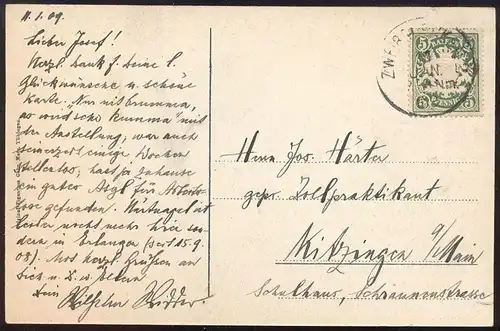 11.1.09.
Lieber Josef!
Herzl. Dank f. Deine l.
Glückwünsche u. schöne
Karte. "Nur nit brumma,
es wird scho kumma" mit
der Anstellung; war auch
seinerzeit einige Wochen
stellenlos, hast ja zuhause
ein gutes Asyl für Arbeits-
lose gefunden. Härtnagel ist
leider nicht mehr hier son-
dern in Erlangen (seit 15.9.
08). Mit herzl. Grüßen an
Dich u. Deine Lieben
Dein Wilhelm
ZWE
BAYERN
5 5
5 5
PFENNIG
Herrn Jos. Härter
gepr. Zollpraktikant
Kitzingen a/Main
Schulhaus, Schrannenstrasse